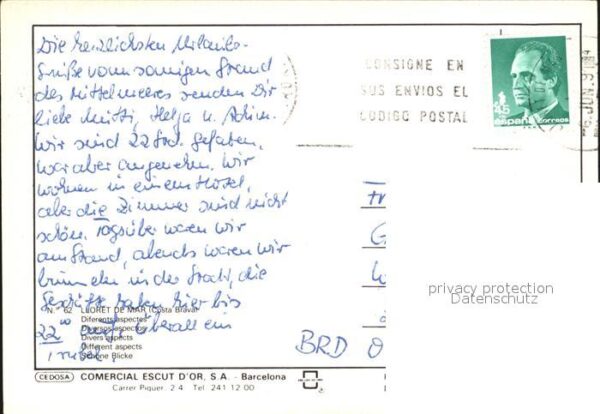 Die herzlichsten Urlaubs-
grüße vom sonnigen Strand
des Mittelmeeres senden Dir
liebe Mutti, Helga u. Achim.
Wir sind 22 Std. gefahren,
war aber angenehm. Wir
wohnen in einem Hotel,
aber die Zimmer sind nicht
schön. Tagsüber waren wir
am Strand, abends waren wir
bummeln in der Stadt, die
Geschäfte haben hier bis
22⁰⁰ auf. Überall ein
Trubel.
CONSIGNE EN
SUS ENVIOS EL
CODIGO POSTAL
6 JUN. 91
españa correos
N.° 62 LLORET DE MAR (Costa Brava)
Diferents aspectes
Diversos aspectos
Divers aspects
Different aspects
Schöne Blicke
BRD
privacy protection
Datenschutz
CEDOSA COMERCIAL ESCUT D'OR, S.A. - Barcelona
Carrer Piquer, 2 4 Tel. 241 12 00